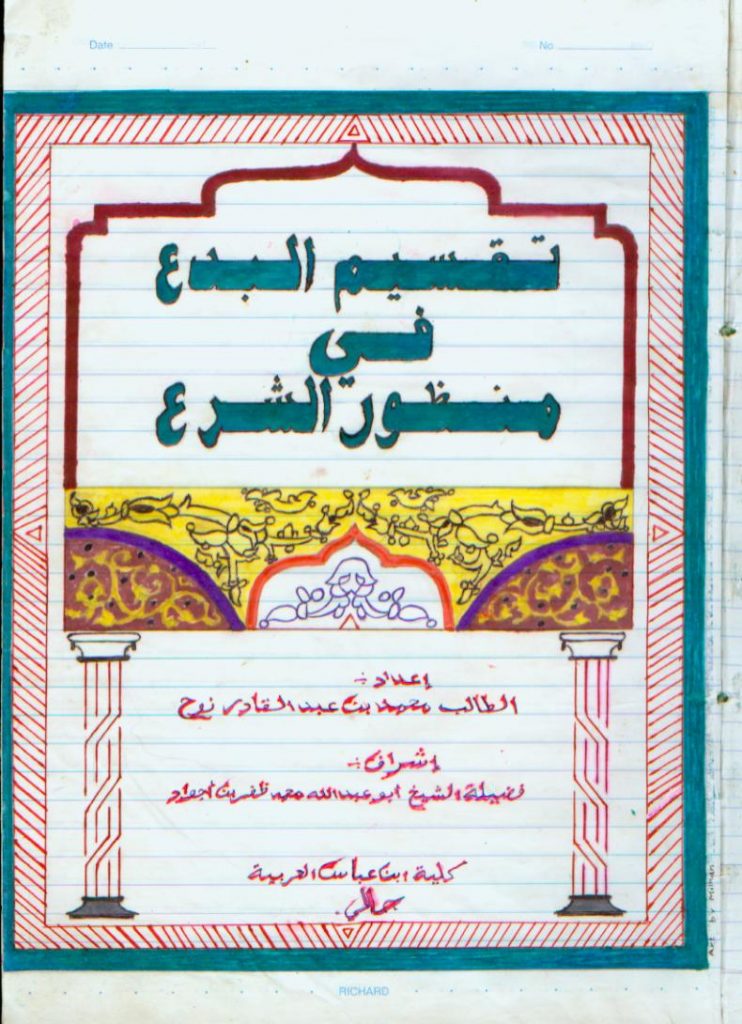 Date
No
تقسيم البدع
في
منظور الشرع
إعداد :-
الطالب محمد بن عبد القادر نوح
إشراف :-
فضيلة الشيخ أبو عبد الله محمد ظفر بن
كلية ابن عباس العربية
جالي.
RICHARD
ART BY